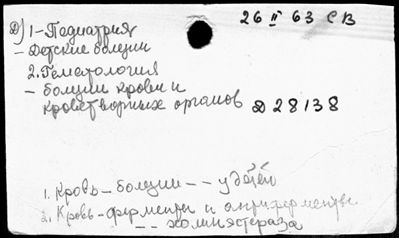 26 II 63 СВ
Д) 1-Педиатрия
- Детские болезни
2. Гематология
- болезни крови и
кроветворных органов Д 28138
1. Кровь - болезни - - у детей
2. Кровь - ферменты и антиферменты
- - холинэстераза